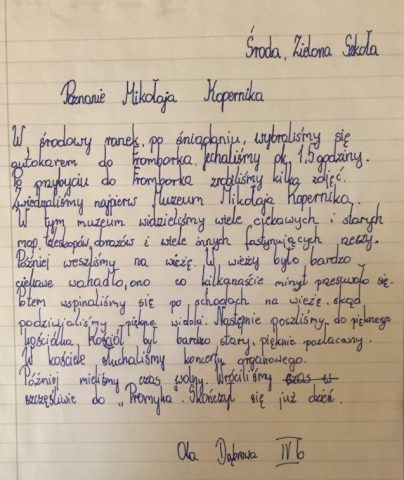 Środa, Zielona Szkoła
Poznanie Mikołaja Kopernika
W środowy ranek, po śniadaniu, wybraliśmy się
autokarem do Fromborka. Jechaliśmy ok. 1,5 godziny.
Po przybyciu do Fromborka zrobiliśmy kilka zdjęć.
Zwiedzaliśmy najpierw Muzeum Mikołaja Kopernika.
W tym muzeum widzieliśmy wiele ciekawych i starych
map, teleskopów, obrazów i wiele innych fastynujących rzeczy.
Później weszliśmy na wieżę. W wieży było bardzo
ciekawe wahadło, ono co kilkanaście minut przesuwało się.
Potem wspinaliśmy się po schodach na wieżę, skąd
podziwialiśmy piękne widoki. Następnie poszliśmy do pięknego
kościółka. Kościół był bardzo stary, pięknie pozłacany.
W kościele słuchaliśmy koncertu organowego.
Później mieliśmy czas wolny. Wróciliśmy czas w
szczęśliwie do „Promyka". Skończył się już dzień.
Ola Dąbrowa IV b